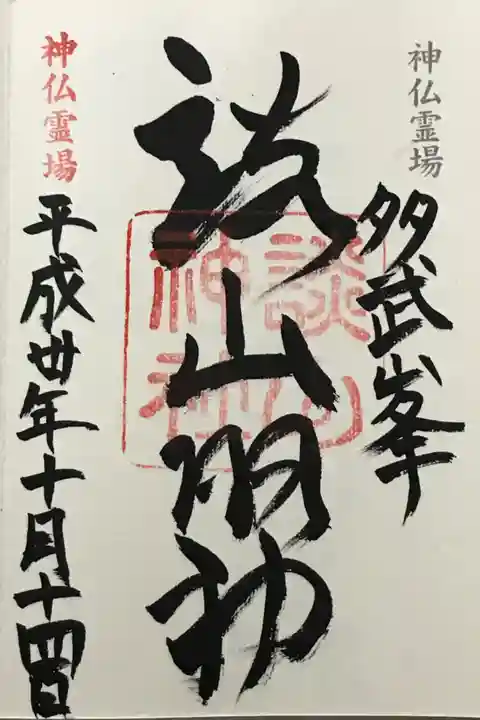 神仏霊場
多武峯
談山明神
談山神社
神仏霊場
平成卅年十月十四日